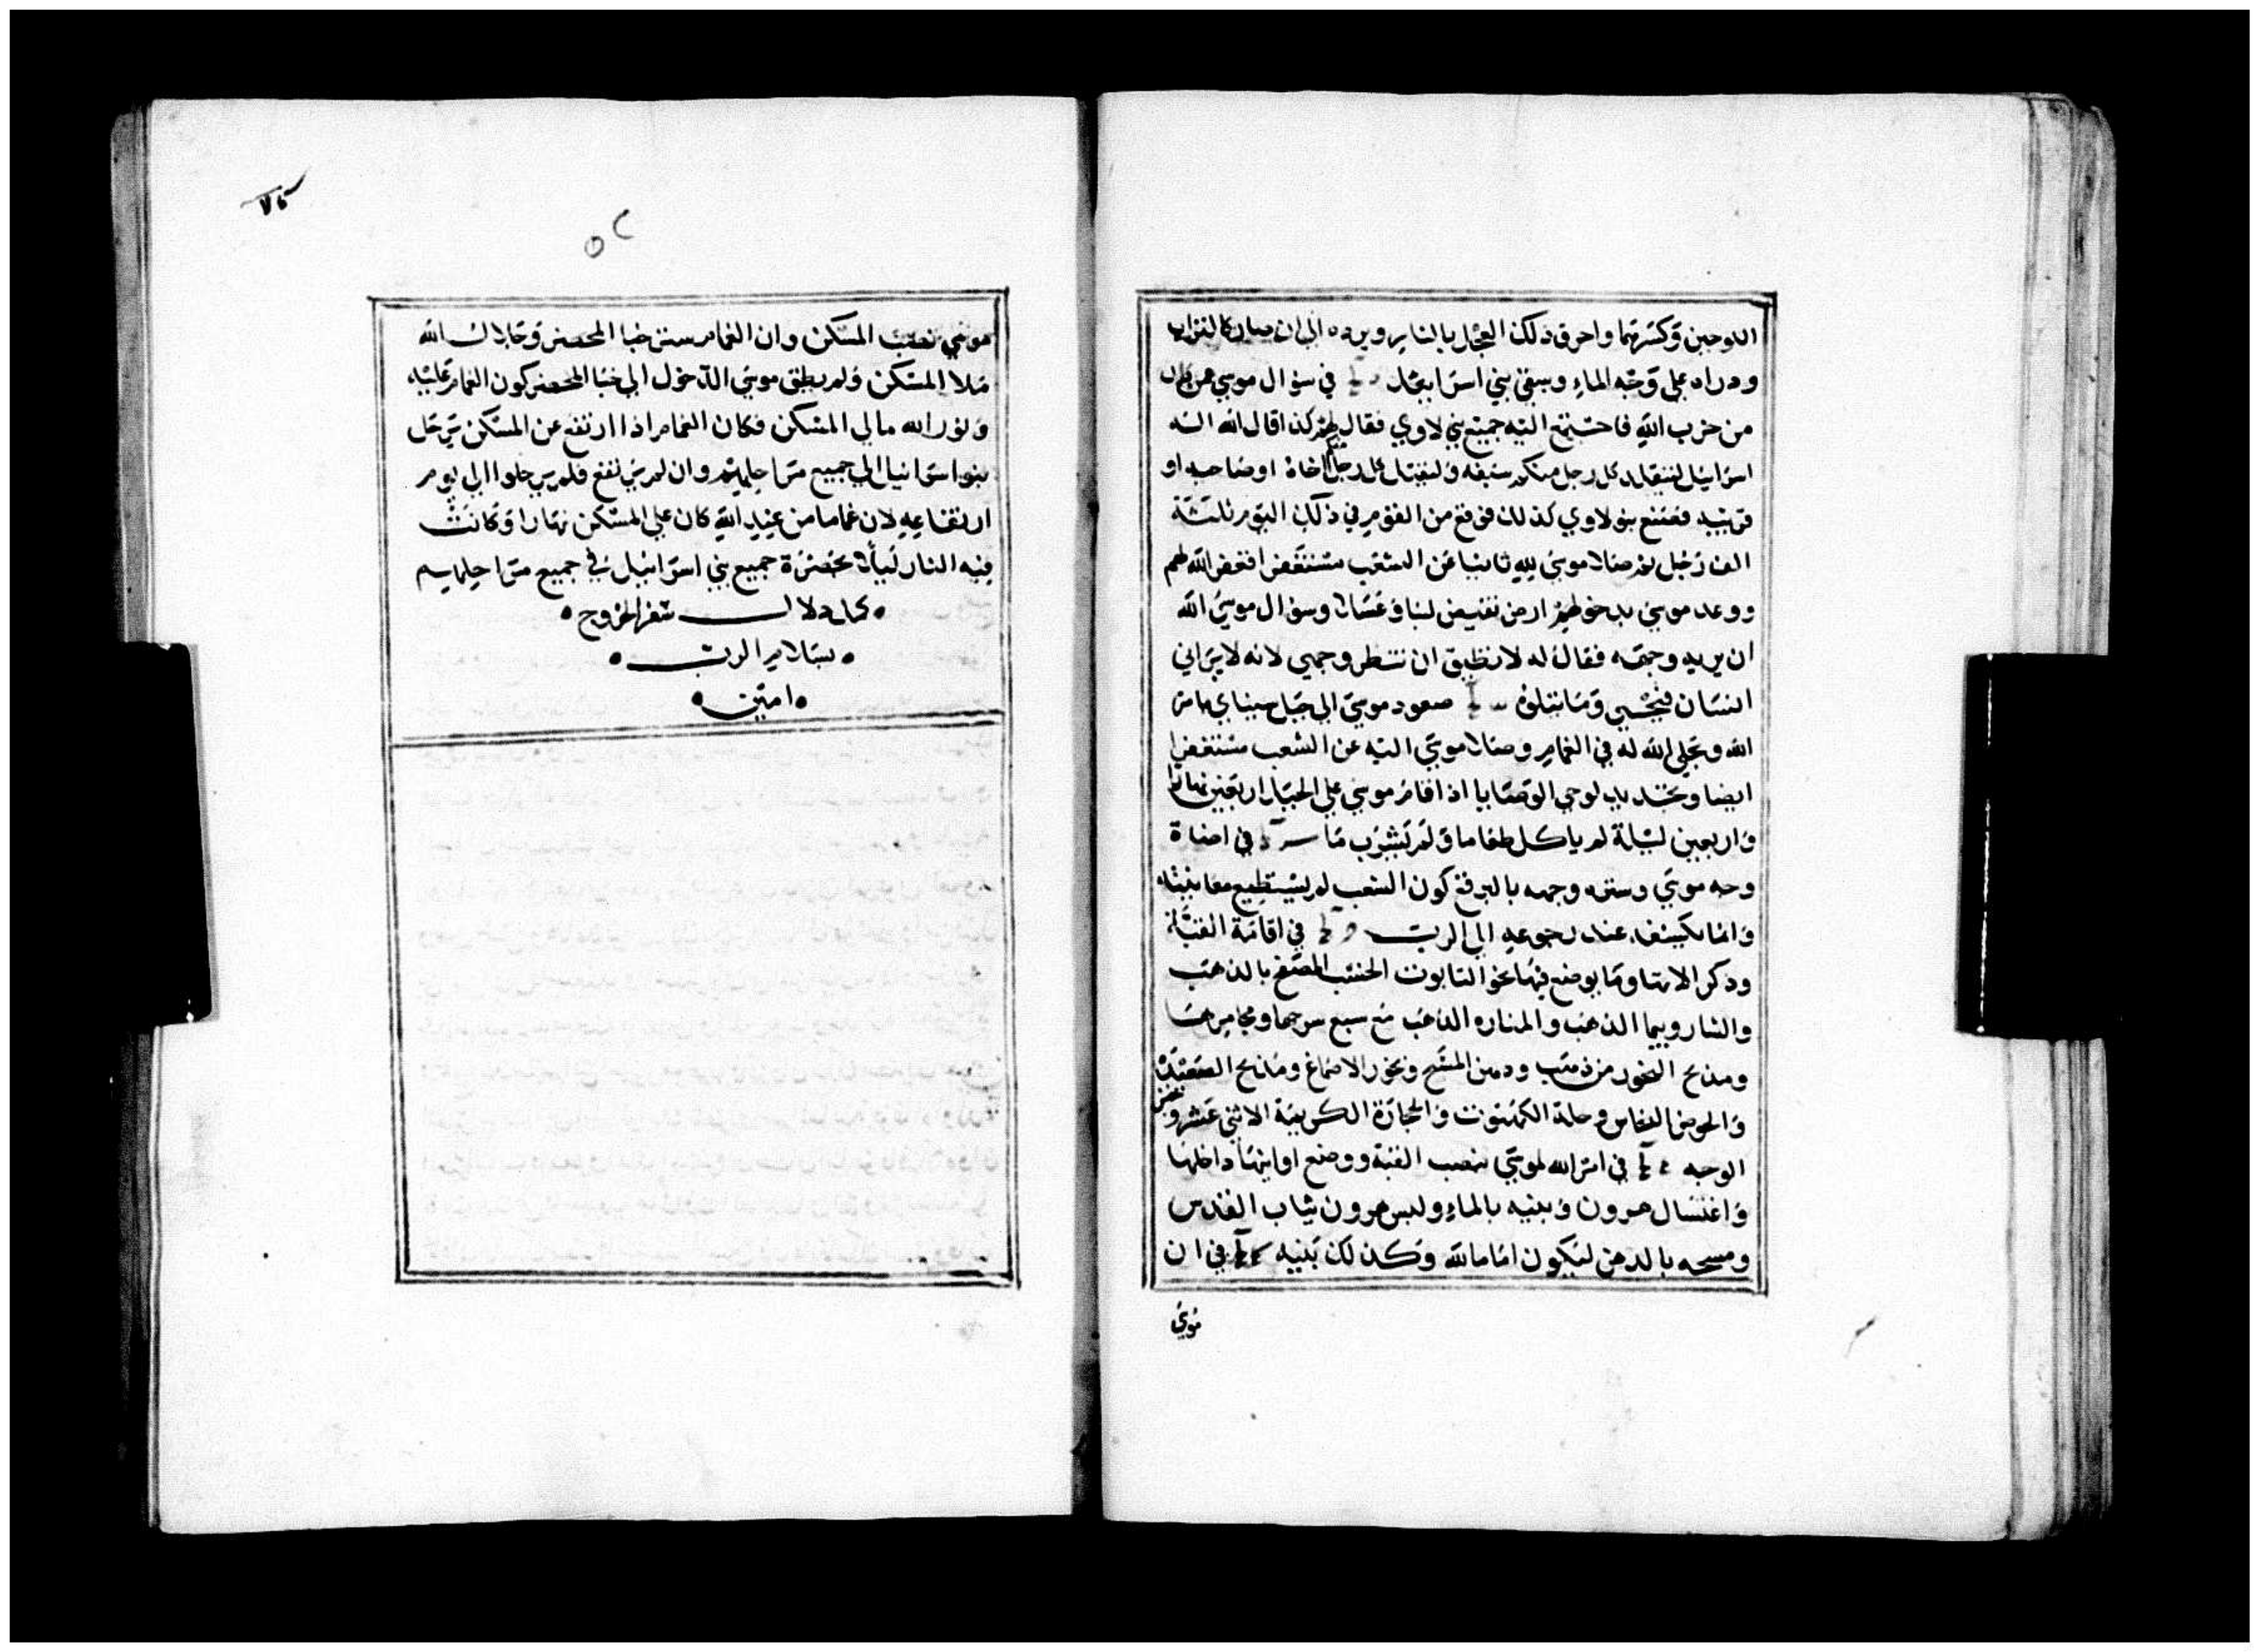 اللوحين وكسرهما واحرق ذلك العجل بالنار وبرده الي ان صار كالتراب
ودراه علي وجه الماء وسقي بني اسرائيل في سؤال موسي من كان
من حزب الله فاجتمع اليه جميع بني لاوي فقال لهم كذا قال الله اله
اسرائيل ليتقلد كل رجل منكم سيفه وليقتل كل رجل اخاه او صاحبه او
قريبه فصنع بنو لاوي كذلك فوقع من القوم في ذلك اليوم ثلثة
الف رجل ثم صلا موسي لله ثانيا عن الشعب مستغفرا فغفر الله لهم
ووعد موسي بدخولهم ارض تفيض لبنا وعسلا وسؤال موسي الله
ان يريه وجهه فقال له لا تطيق ان تنظر وجهي لانه لا يراني
انسان فيحيي وما يتلوه صعود موسي الي جبل سيناي بامر
الله وتجلي الله له في الغمام وصلاه موسي اليه عن الشعب مستغفرا
ايضا وتجديد لوحي الوصايا اذ اقام موسي علي الجبل اربعين نهارا
واربعين ليلة لم ياكل طعاما ولم يشرب ما في اضاة
وجه موسي وستره وجهه بالبرقع كون الشعب لم يستطيع معاينته
وانما يكشفه عند رجوعه الي الرب في اقامة القبة
وذكر الاتها وما يوضع فيها نحو التابوت الخشب المصفح بالذهب
والشاروبيم الذهب والمناره الذهب مع سبع سرجها ومجامرها
ومذبح البخور من ذهب ودهن المسح وبخور الاصماغ ومذبح الصعيدة
والحوض النحاس وحلة الكهنوت والحجارة الكريمة الاثني عشر وخبز
الوجه في امر الله لموسي بنصب القبة ووضع اوانيها داخلها
واغتسال هرون وبنيه بالماء ولبس هرون ثياب القدس
ومسحه بالدهن ليكون اماما لله وكذلك بنيه في ان
موسي
موسي نصب المسكن وان الغمام ستر خبا المحضر وجلال الله
ملا المسكن ولم يطق موسي الدخول الي خبا المحضر كون الغمام عليه
ونور الله مالي المسكن فكان الغمام اذا ارتفع عن المسكن يرتحل
بنو اسرائيل الي جميع مراحلهم وان لم يرتفع فلم يرحلوا الي يوم
ارتفاعه لان غماما من عند الله كان علي المسكن نهارا وكانت
فيه النار ليلا بحضرة جميع بني اسرائيل في جميع مراحلهم
سفر الخروج
بسلام الرب
امين